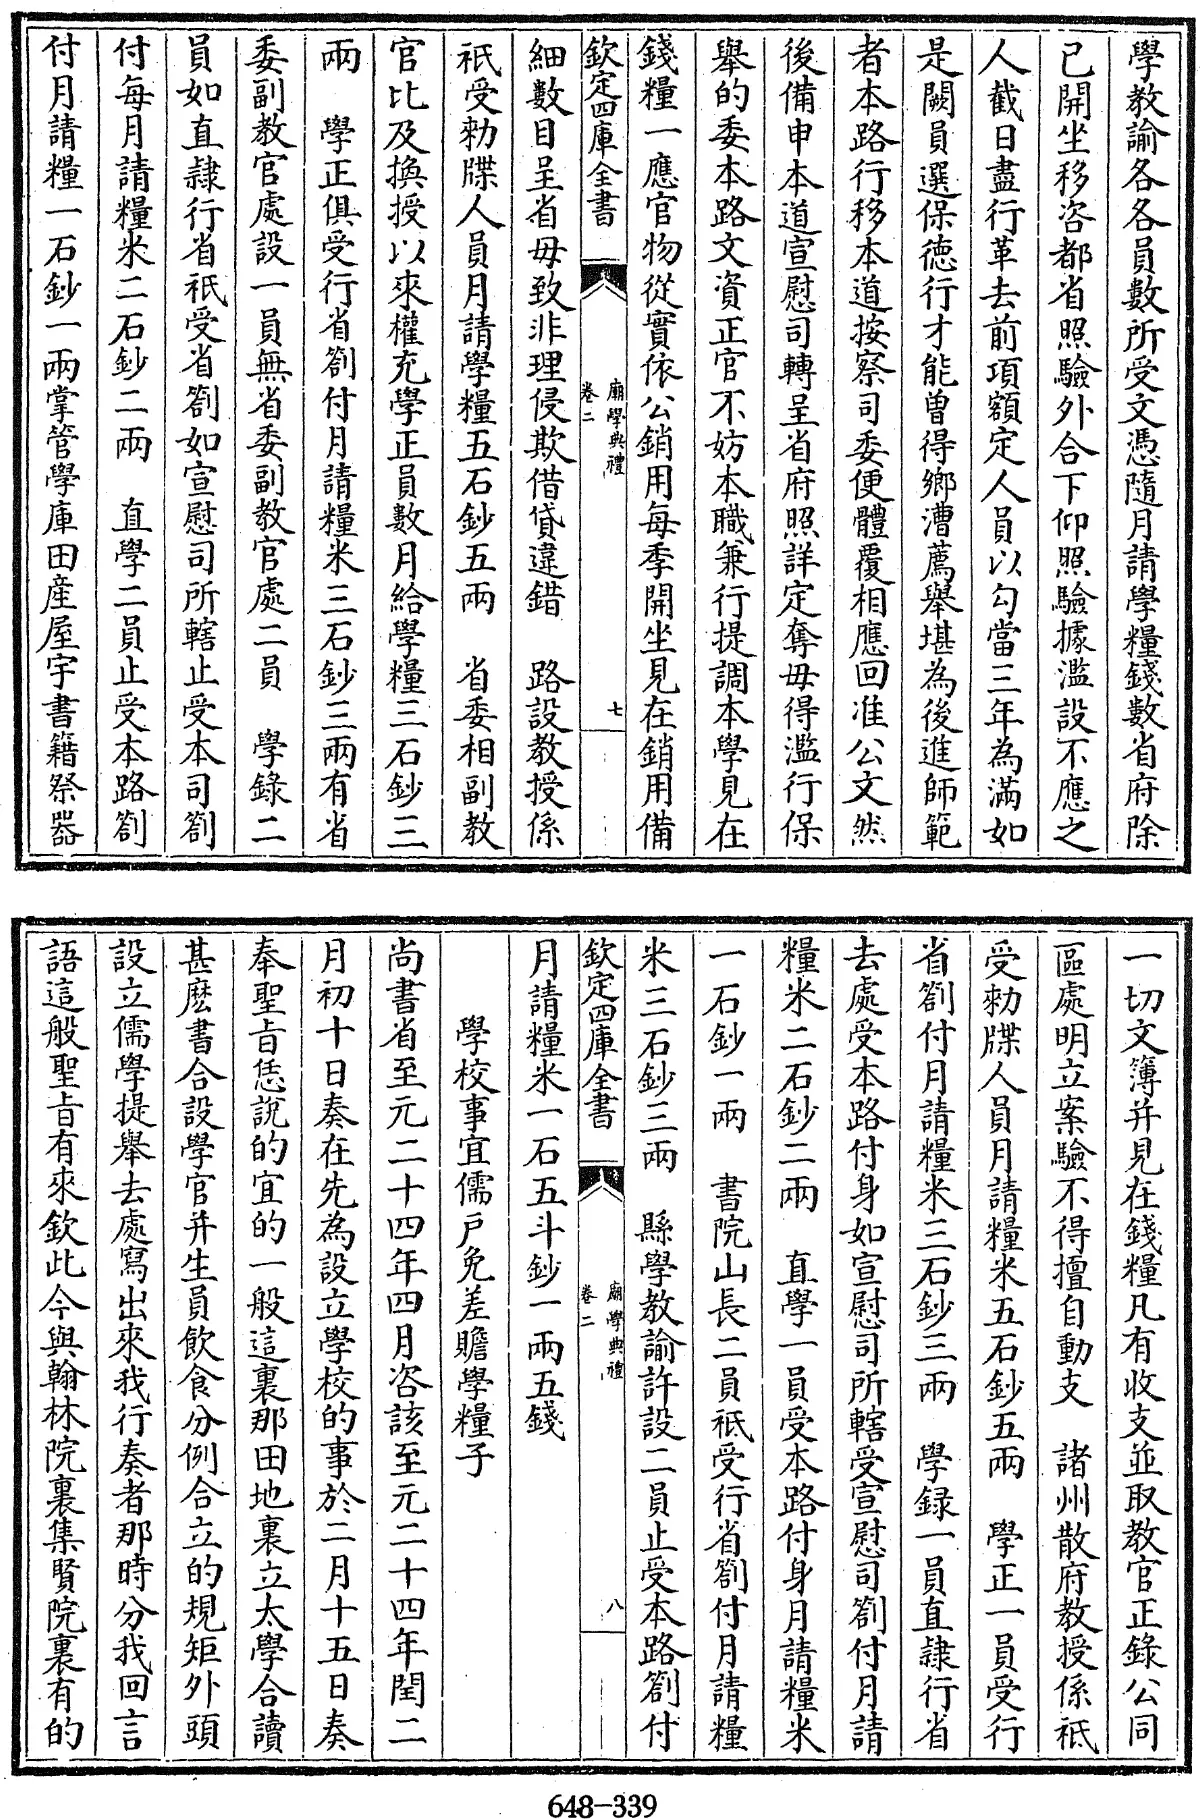 學教諭各各員數所受文憑隨月請學糧錢數省府除
已開坐移咨都省照驗外合下仰照驗據濫設不應之
人截日盡行革去前項額定人員以勾當三年為滿如
是闕員選保德行才能曽得鄉漕薦舉堪為後進師範
者本路行移本道按察司委便體覆相應回准公文然
後備申本道宣慰司轉呈省府照詳定奪毋得濫行保
舉的委本路文資正官不妨本職兼行提調本學見在
錢糧一應官物從實依公銷用每季開坐見在銷用備
欽定四庫全書
廟學典禮
卷二
七
細數目呈省毋致非理侵欺借貸違錯　路設教授係
祇受勅牒人員月請學糧五石鈔五兩　省委相副教
官比及換授以來權充學正員數月給學糧三石鈔三
兩　學正俱受行省劄付月請糧米三石鈔三兩有省
委副教官處設一員無省委副教官處二員　學錄二
員如直隷行省祇受省劄如宣慰司所轄止受本司劄
付每月請糧米二石鈔二兩　直學二員止受本路劄
付月請糧一石鈔一兩掌管學庫田産屋宇書籍祭器
一切文簿并見在錢糧凡有收支並取教官正錄公同
區處明立案驗不得擅自動支　諸州散府教授係祇
受勅牒人員月請糧米五石鈔五兩　學正一員受行
省劄付月請糧米三石鈔三兩　學録一員直隷行省
去處受本路付身如宣慰司所轄受宣慰司劄付月請
糧米二石鈔二兩　直學一員受本路付身月請糧米
一石鈔一兩　書院山長二員祇受行省劄付月請糧
米三石鈔三兩　縣學教諭許設二員止受本路劄付
欽定四庫全書
廟學典禮
卷二
八
月請糧米一石五斗鈔一兩五錢
學校事宜儒户免差贍學糧子
尚書省至元二十四年四月咨該至元二十四年閏二
月初十日奏在先為設立學校的事於二月十五日奏
奉聖㫖恁說的宜的一般這裏那田地裏立太學合讀
甚麽書合設學官并生員飲食分例合立的規矩外頭
設立儒學提舉去處寫出來我行奏者那時分我回言
語這般聖㫖有來欽此今與翰林院裏集賢院裏有的
648-339